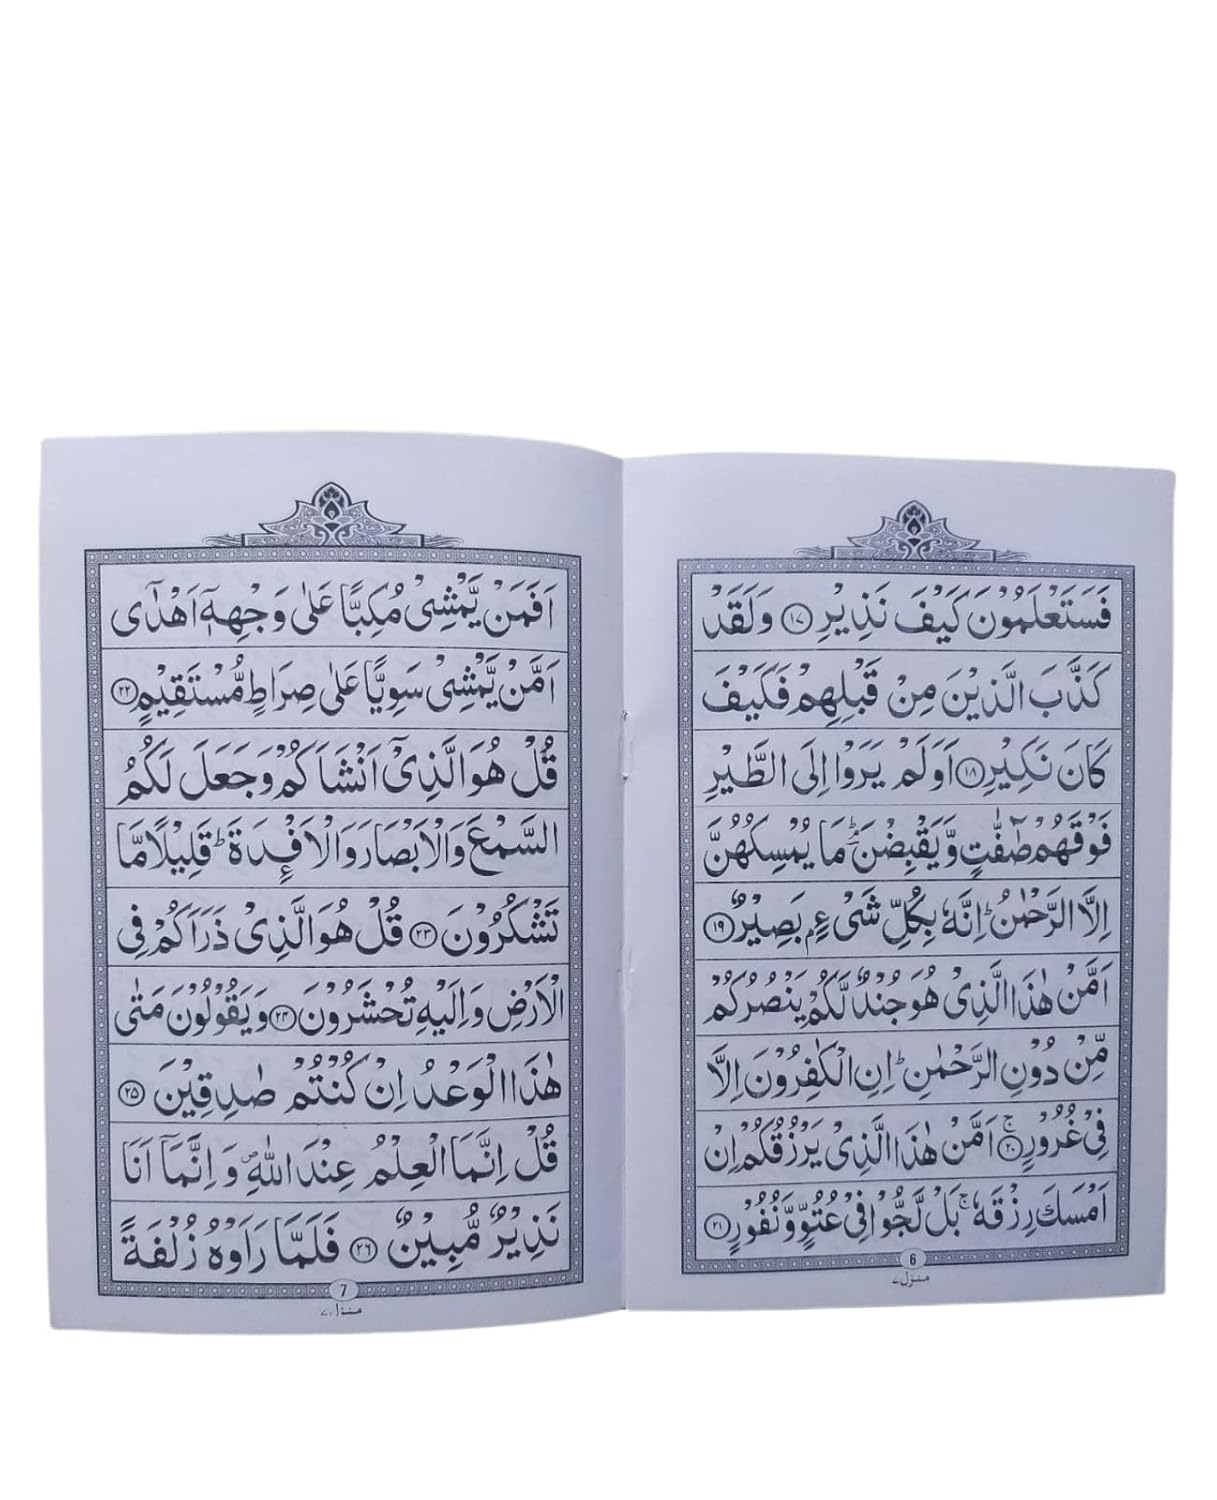 فَسَتَعْلَمُوْنَ كَيْفَ نَذِيْرِ ۝۱۷ وَلَقَدْ
كَذَّبَ الَّذِيْنَ مِنْ قَبْلِهِمْ فَكَيْفَ
كَانَ نَكِيْرِ ۝۱۸ اَوَلَمْ يَرَوْا اِلَى الطَّيْرِ
فَوْقَهُمْ صٰٓفّٰتٍ وَّيَقْبِضْنَ ؔۘ مَا يُمْسِكُهُنَّ
اِلَّا الرَّحْمٰنُ ؕ اِنَّهٗ بِكُلِّ شَىْءٍۭ بَصِيْرٌ ۝۱۹
اَمَّنْ هٰذَا الَّذِىْ هُوَ جُنْدٌ لَّكُمْ يَنْصُرُكُمْ
مِّنْ دُوْنِ الرَّحْمٰنِ ؕ اِنِ الْكٰفِرُوْنَ اِلَّا
فِىْ غُرُوْرٍ ۚ ۝۲۰ اَمَّنْ هٰذَا الَّذِىْ يَرْزُقُكُمْ اِنْ
اَمْسَكَ رِزْقَهٗ ۚ بَلْ لَّجُّوْا فِىْ عُتُوٍّ وَّنُفُوْرٍ ۝۲۱
6
منزل ۷
اَفَمَنْ يَّمْشِىْ مُكِبًّا عَلٰى وَجْهِهٖٓ اَهْدٰٓى
اَمَّنْ يَّمْشِىْ سَوِيًّا عَلٰى صِرَاطٍ مُّسْتَقِيْمٍ ۝۲۲
قُلْ هُوَ الَّذِىْٓ اَنْشَاَكُمْ وَجَعَلَ لَكُمُ
السَّمْعَ وَالْاَبْصَارَ وَالْاَفْـِٕدَةَ ؕ قَلِيْلًا مَّا
تَشْكُرُوْنَ ۝۲۳ قُلْ هُوَ الَّذِىْ ذَرَاَكُمْ فِى
الْاَرْضِ وَاِلَيْهِ تُحْشَرُوْنَ ۝۲۴ وَيَقُوْلُوْنَ مَتٰى
هٰذَا الْوَعْدُ اِنْ كُنْتُمْ صٰدِقِيْنَ ۝۲۵
قُلْ اِنَّمَا الْعِلْمُ عِنْدَ اللّٰهِ ۪ وَاِنَّمَآ اَنَا
نَذِيْرٌ مُّبِيْنٌ ۝۲۶ فَلَمَّا رَاَوْهُ زُلْفَةً
7
منزل ۷